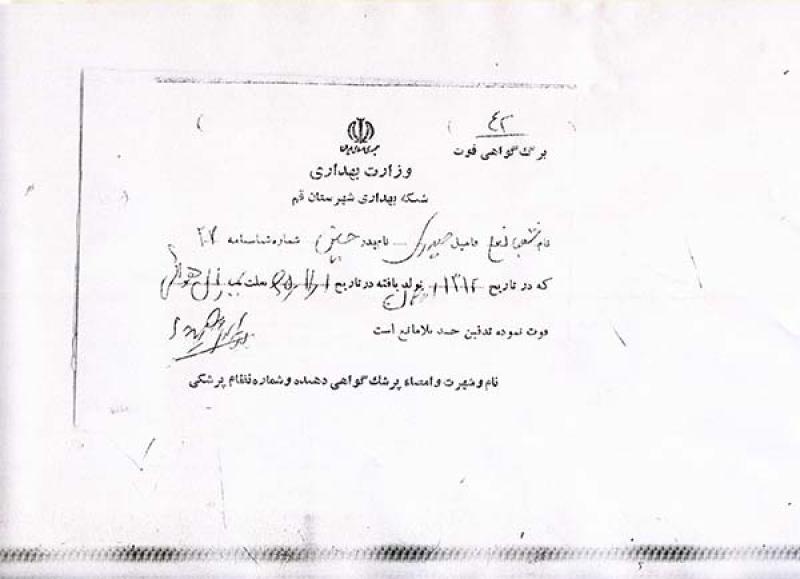 ٤٢
برگ گواهی فوت
جمهوری اسلامی ایران
وزارت بهداری
شبکه بهداری شهرستان قم
نام شعبانعلی فامیل حیدری نام پدر شماره شناسنامه
که در تاریخ ۱۳۱۲ تولد یافته در تاریخ بعلت بمباران هوائی
فوت نموده تدفین جسد بلامانع است
نام و شهرت و امضاء پزشك گواهی دهنده و شماره نظام پزشکی